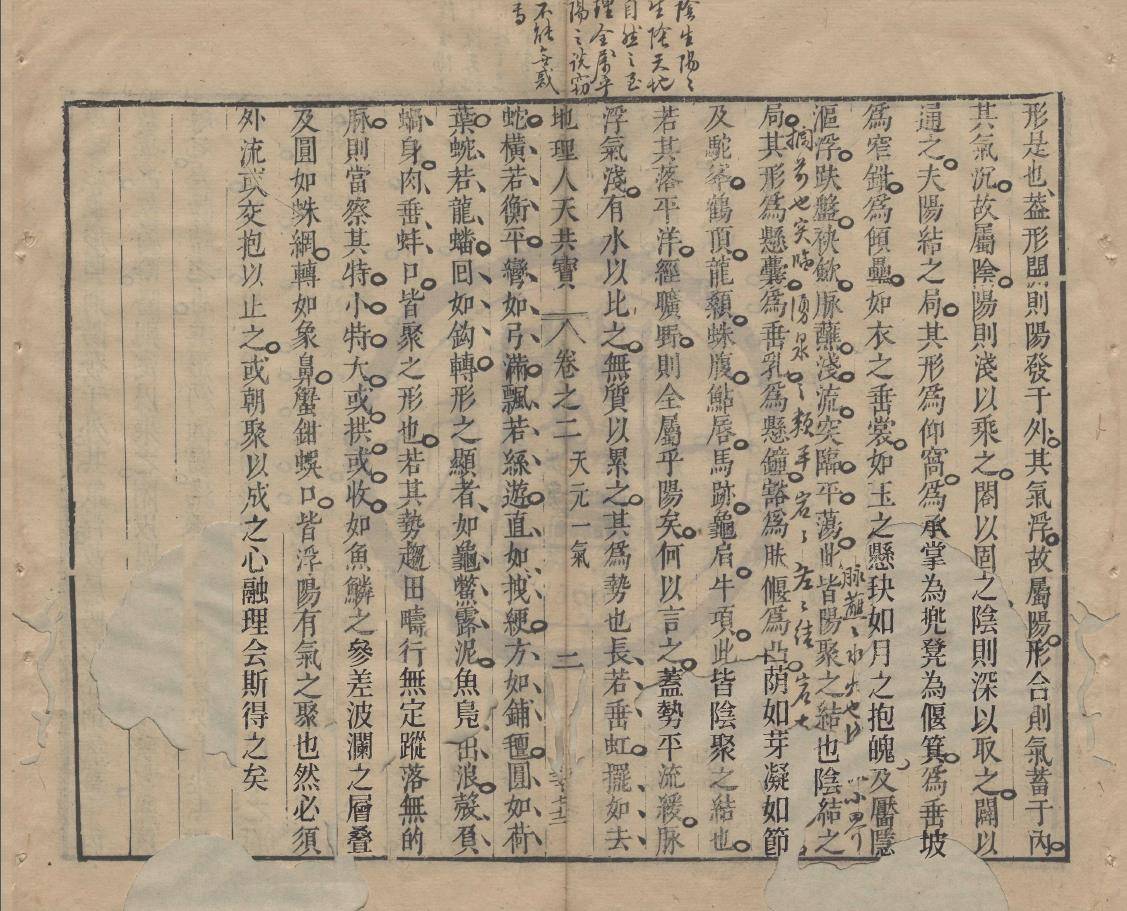 陰生陽陽
生陰天地
自然之至
理全屬乎
陽之說窃
不能無惑
焉
形是也蓋形開則陽發于外其氣浮故屬陽形合則氣蓄于內
其氣沉故屬陰陽則淺以乘之陰則深以取之闢以
通之夫陽結之局其形為仰窩為承掌為兠凳為偃箕為垂坡
為窄鉗為傾壘如衣之垂裳如玉之懸玦如月之抱魄及靨隱
漚浮趺盤袂歛脉蘸淺流突臨平蕩此皆陽聚之結也陰結之
局其形為懸囊為垂乳為懸鐘豁為肤偃為凸荫如芽凝如節
及駝峯鶴頂龍顙蛛腹鮎唇馬跡龜肩牛項此皆陰聚之結也
若其落平洋經曠野則全屬乎陽矣何以言之蓋勢平流緩脉
浮氣淺有水以比之無質以累之其為勢也長若垂虹擺如去
地理人天共寶 卷之二 天元一氣 二
蛇橫若衡平彎如弓滿飄若絲遊直如拽綆方如鋪氊圓如荷
葉蜿若龍蟠回如鈎轉形之顯者如龜鱉露泥魚鳬出浪殼負
蝸身肉垂蚌口皆聚之形也若其勢趨田疇行無定蹤落無的
脉則當察其特小特大或拱或收如魚鱗之參差波瀾之層叠
及圓如蛛網轉如象鼻蟹鉗螟口皆浮陽有氣之聚也然必須
外流或交抱以止之或朝聚以成之心融理会斯得之矣